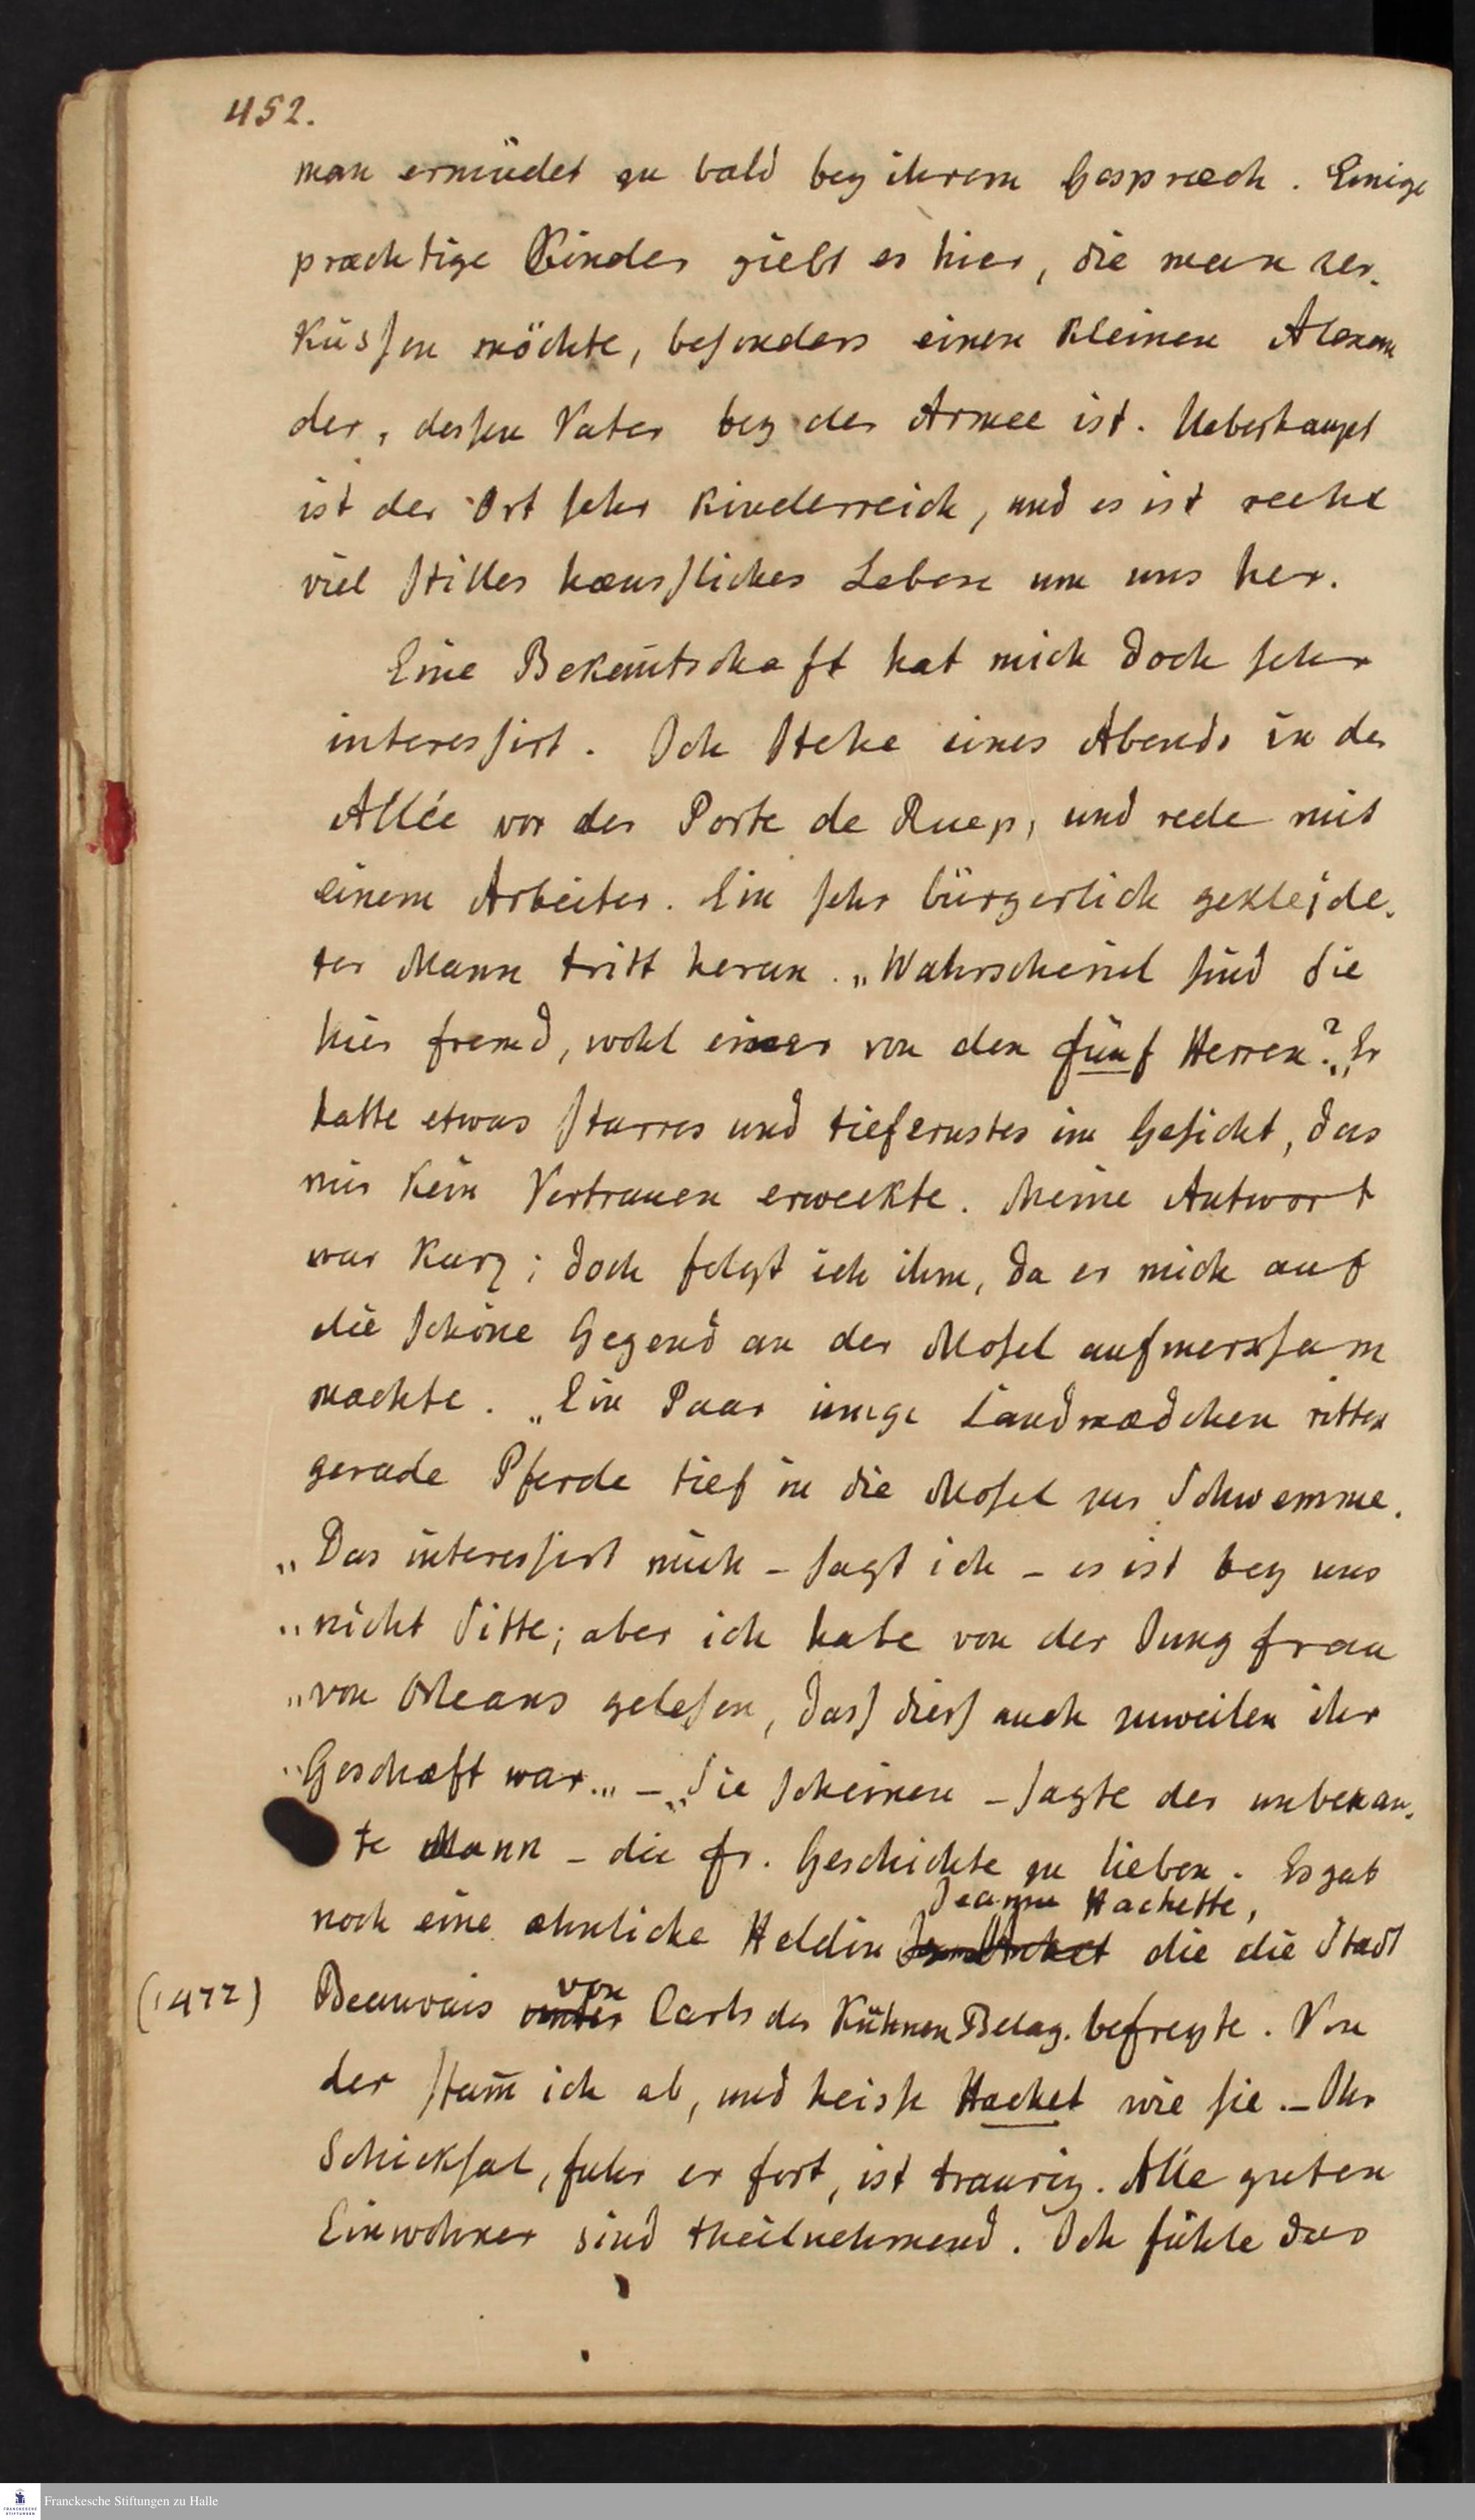 452.
man ermüdet zu bald bey ihrem Gespræch. Einige
præchtige Kinder giebt es hier, die man zer-
küssen möchte, besonders einen kleinen Alexan
der, dessen Vater bey der Armee ist. Ueberhaupt
ist der Ort sehr kinderreich, und es ist recht
viel stilles hæusliches Leben um uns her.
Eine Bekañtschaft hat mich doch sehr
interessirt. Ich stehe eines Abends in der
Allée vor der Porte de Ruep, und rede mit
einem Arbeiter. Ein sehr bürgerlich gekleide-
ter Mann tritt heran. „Wahrscheinl sind Sie
hier fremd, wohl einer von den fünf Herren?„ Er
hatte etwas starres und tiefernstes im Gesicht, das
mir kein Vertrauen erweckte. Meine Antwort
war kurz; doch folgt ich ihm, da er mich auf
die schöne Gegend an der Mosel aufmerksam
machte. „Ein Paar iunge Landmædchen ritten
gerade Pferde tief in die Mosel zur Schwemme.
„Das interessirt mich - sagt ich - es ist bey uns
„nicht Sitte; aber ich habe von der Jungfrau
„von Orleans gelesen, dass diess auch zuweilen ihr
„Geschæft war.„ - „Sie scheinen - sagte der unbekan-
te Mann - die fr. Geschichte zu lieben. Es gab
Jeanne Hachette,
noch eine æhnliche Heldin die die Stadt
(1472) Beauvais von Carls des Kühnen Belag. befreyte. Von
der stam̄ ich ab, und heisse Hachet wie sie. - Ihr
Schicksal, fuhr er fort, ist traurig. Alle guten
Einwohner sind theilnehmend. Ich fühle das
Franckesche Stiftungen zu Halle